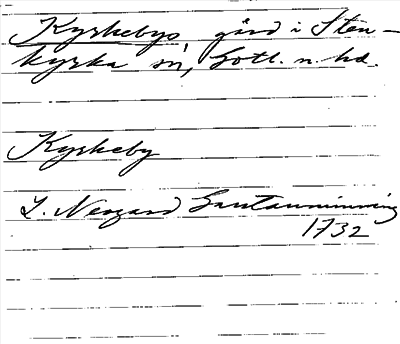 Kyrkebys gård i Sten-
kyrka sn, Gotl. n. hd.
Kyrkeby
J. Neogard
1732